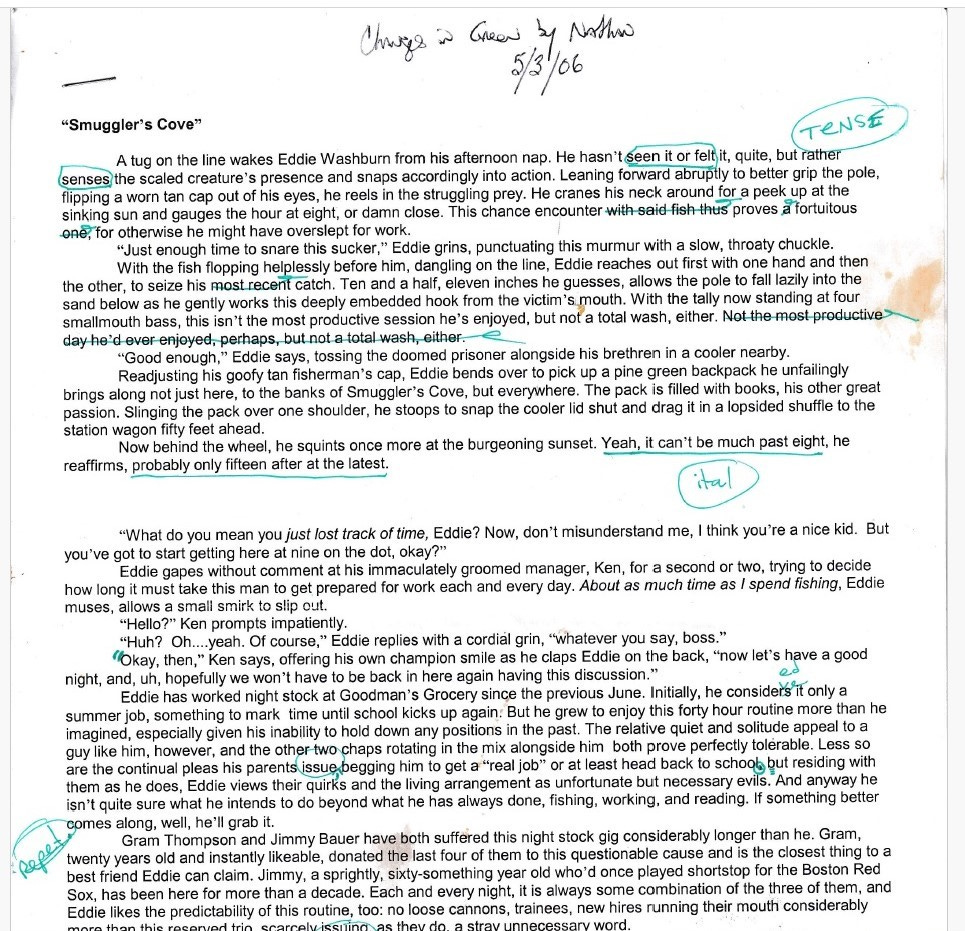 Changes in Green by Nathan
5/3/06
TENSE
“Smuggler’s Cove”
A tug on the line wakes Eddie Washburn from his afternoon nap. He hasn’t seen it or felt it, quite, but rather
senses the scaled creature’s presence and snaps accordingly into action. Leaning forward abruptly to better grip the pole,
flipping a worn tan cap out of his eyes, he reels in the struggling prey. He cranes his neck around for a peek up at the
sinking sun and gauges the hour at eight, or damn close. This chance encounter with said fish thus proves a fortuitous
one, for otherwise he might have overslept for work.
“Just enough time to snare this sucker,” Eddie grins, punctuating this murmur with a slow, throaty chuckle.
With the fish flopping helplessly before him, dangling on the line, Eddie reaches out first with one hand and then
the other, to seize his most recent catch. Ten and a half, eleven inches he guesses, allows the pole to fall lazily into the
sand below as he gently works this deeply embedded hook from the victim’s mouth. With the tally now standing at four
smallmouth bass, this isn’t the most productive session he’s enjoyed, but not a total wash, either. Not the most productive
day he’d ever enjoyed, perhaps, but not a total wash, either.
“Good enough,” Eddie says, tossing the doomed prisoner alongside his brethren in a cooler nearby.
Readjusting his goofy tan fisherman’s cap, Eddie bends over to pick up a pine green backpack he unfailingly
brings along not just here, to the banks of Smuggler’s Cove, but everywhere. The pack is filled with books, his other great
passion. Slinging the pack over one shoulder, he stoops to snap the cooler lid shut and drag it in a lopsided shuffle to the
station wagon fifty feet ahead.
Now behind the wheel, he squints once more at the burgeoning sunset. Yeah, it can’t be much past eight, he
reaffirms, probably only fifteen after at the latest.
ital
“What do you mean you just lost track of time, Eddie? Now, don’t misunderstand me, I think you’re a nice kid. But
you’ve got to start getting here at nine on the dot, okay?”
Eddie gapes without comment at his immaculately groomed manager, Ken, for a second or two, trying to decide
how long it must take this man to get prepared for work each and every day. About as much time as I spend fishing, Eddie
muses, allows a small smirk to slip out.
“Hello?” Ken prompts impatiently.
“Huh? Oh....yeah. Of course,” Eddie replies with a cordial grin, “whatever you say, boss.”
“Okay, then,” Ken says, offering his own champion smile as he claps Eddie on the back, “now let’s have a good
night, and, uh, hopefully we won’t have to be back in here again having this discussion.”
ed
Eddie has worked night stock at Goodman’s Grocery since the previous June. Initially, he considers it only a
summer job, something to mark time until school kicks up again. But he grew to enjoy this forty hour routine more than he
imagined, especially given his inability to hold down any positions in the past. The relative quiet and solitude appeal to a
guy like him, however, and the other two chaps rotating in the mix alongside him both prove perfectly tolerable. Less so
are the continual pleas his parents issue, begging him to get a “real job” or at least head back to school, but residing with
them as he does, Eddie views their quirks and the living arrangement as unfortunate but necessary evils. And anyway he
isn’t quite sure what he intends to do beyond what he has always done, fishing, working, and reading. If something better
comes along, well, he’ll grab it.
repeat
Gram Thompson and Jimmy Bauer have both suffered this night stock gig considerably longer than he. Gram,
twenty years old and instantly likeable, donated the last four of them to this questionable cause and is the closest thing to a
best friend Eddie can claim. Jimmy, a sprightly, sixty-something year old who’d once played shortstop for the Boston Red
Sox, has been here for more than a decade. Each and every night, it is always some combination of the three of them, and
Eddie likes the predictability of this routine, too: no loose cannons, trainees, new hires running their mouth considerably
more than this reserved trio, scarcely issuing as they do, a stray unnecessary word.